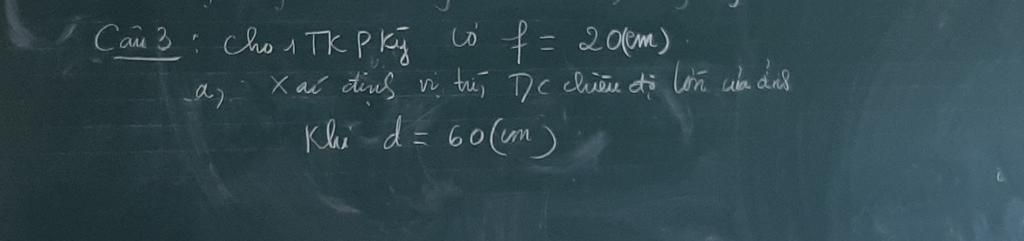 Câu 3 : Cho 1 TK P Kỳ có f = 20(cm).
a, Xác định vị trí, T/c chiều độ lớn của ảnh
Khi d = 60(cm)